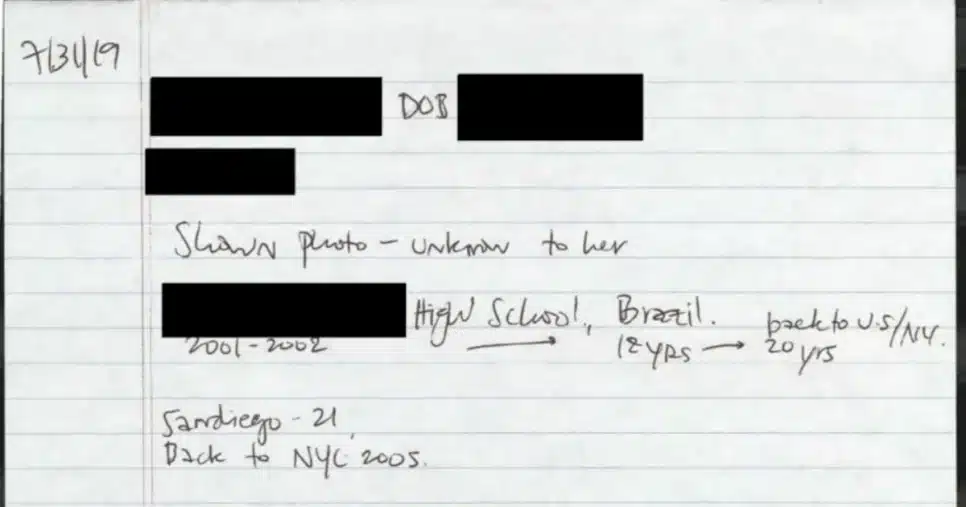 7/31/19
DOB
Shown photo - unknown to her
High School, Brazil. back to U.S/NY.
2001-2002 → 12 yrs → 20 yrs
Sandiego - 21
Back to NYC 2005.